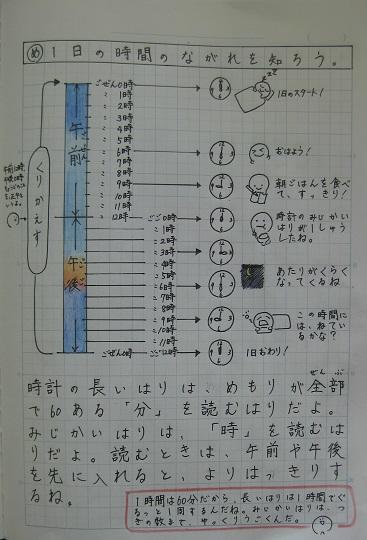 め 1日の時間のながれを知ろう。
ごぜん0時
〃 1時
〃 2時
〃 3時
〃 4時
〃 5時
〃 6時
〃 7時
〃 8時
〃 9時
〃 10時
〃 11時
〃 12時
ごご0時
〃 1時
〃 2時
〃 3時
〃 4時
〃 5時
〃 6時
〃 7時
〃 8時
〃 9時
〃 10時
〃 11時
ごぜん0時
ごご12時
午前
ごぜん
午後
ごご
くりかえす
1日のスタート!
おはよう!
朝ごはんを食べ
て、すっきり!
時計のみじかい
はりが1しゅう
したね。
あたりがくらく
なってくるね
この時間に
は、ねてい
るかな?
1日おわり!
ぜんぶ
時計の長いはりは、めもりが全部
で60ある「分」を読むはりだよ。
みじかいはりは、「時」を読むは
りだよ。読むときは、午前や午後
を先に入れると、よりはっきりす
るね。
1時間は60分だから、長いはりは1時間でぐ
るっと1周するんだね。みじかいはりは、つ
ぎの数まで、ゆっくりうごくんだ。